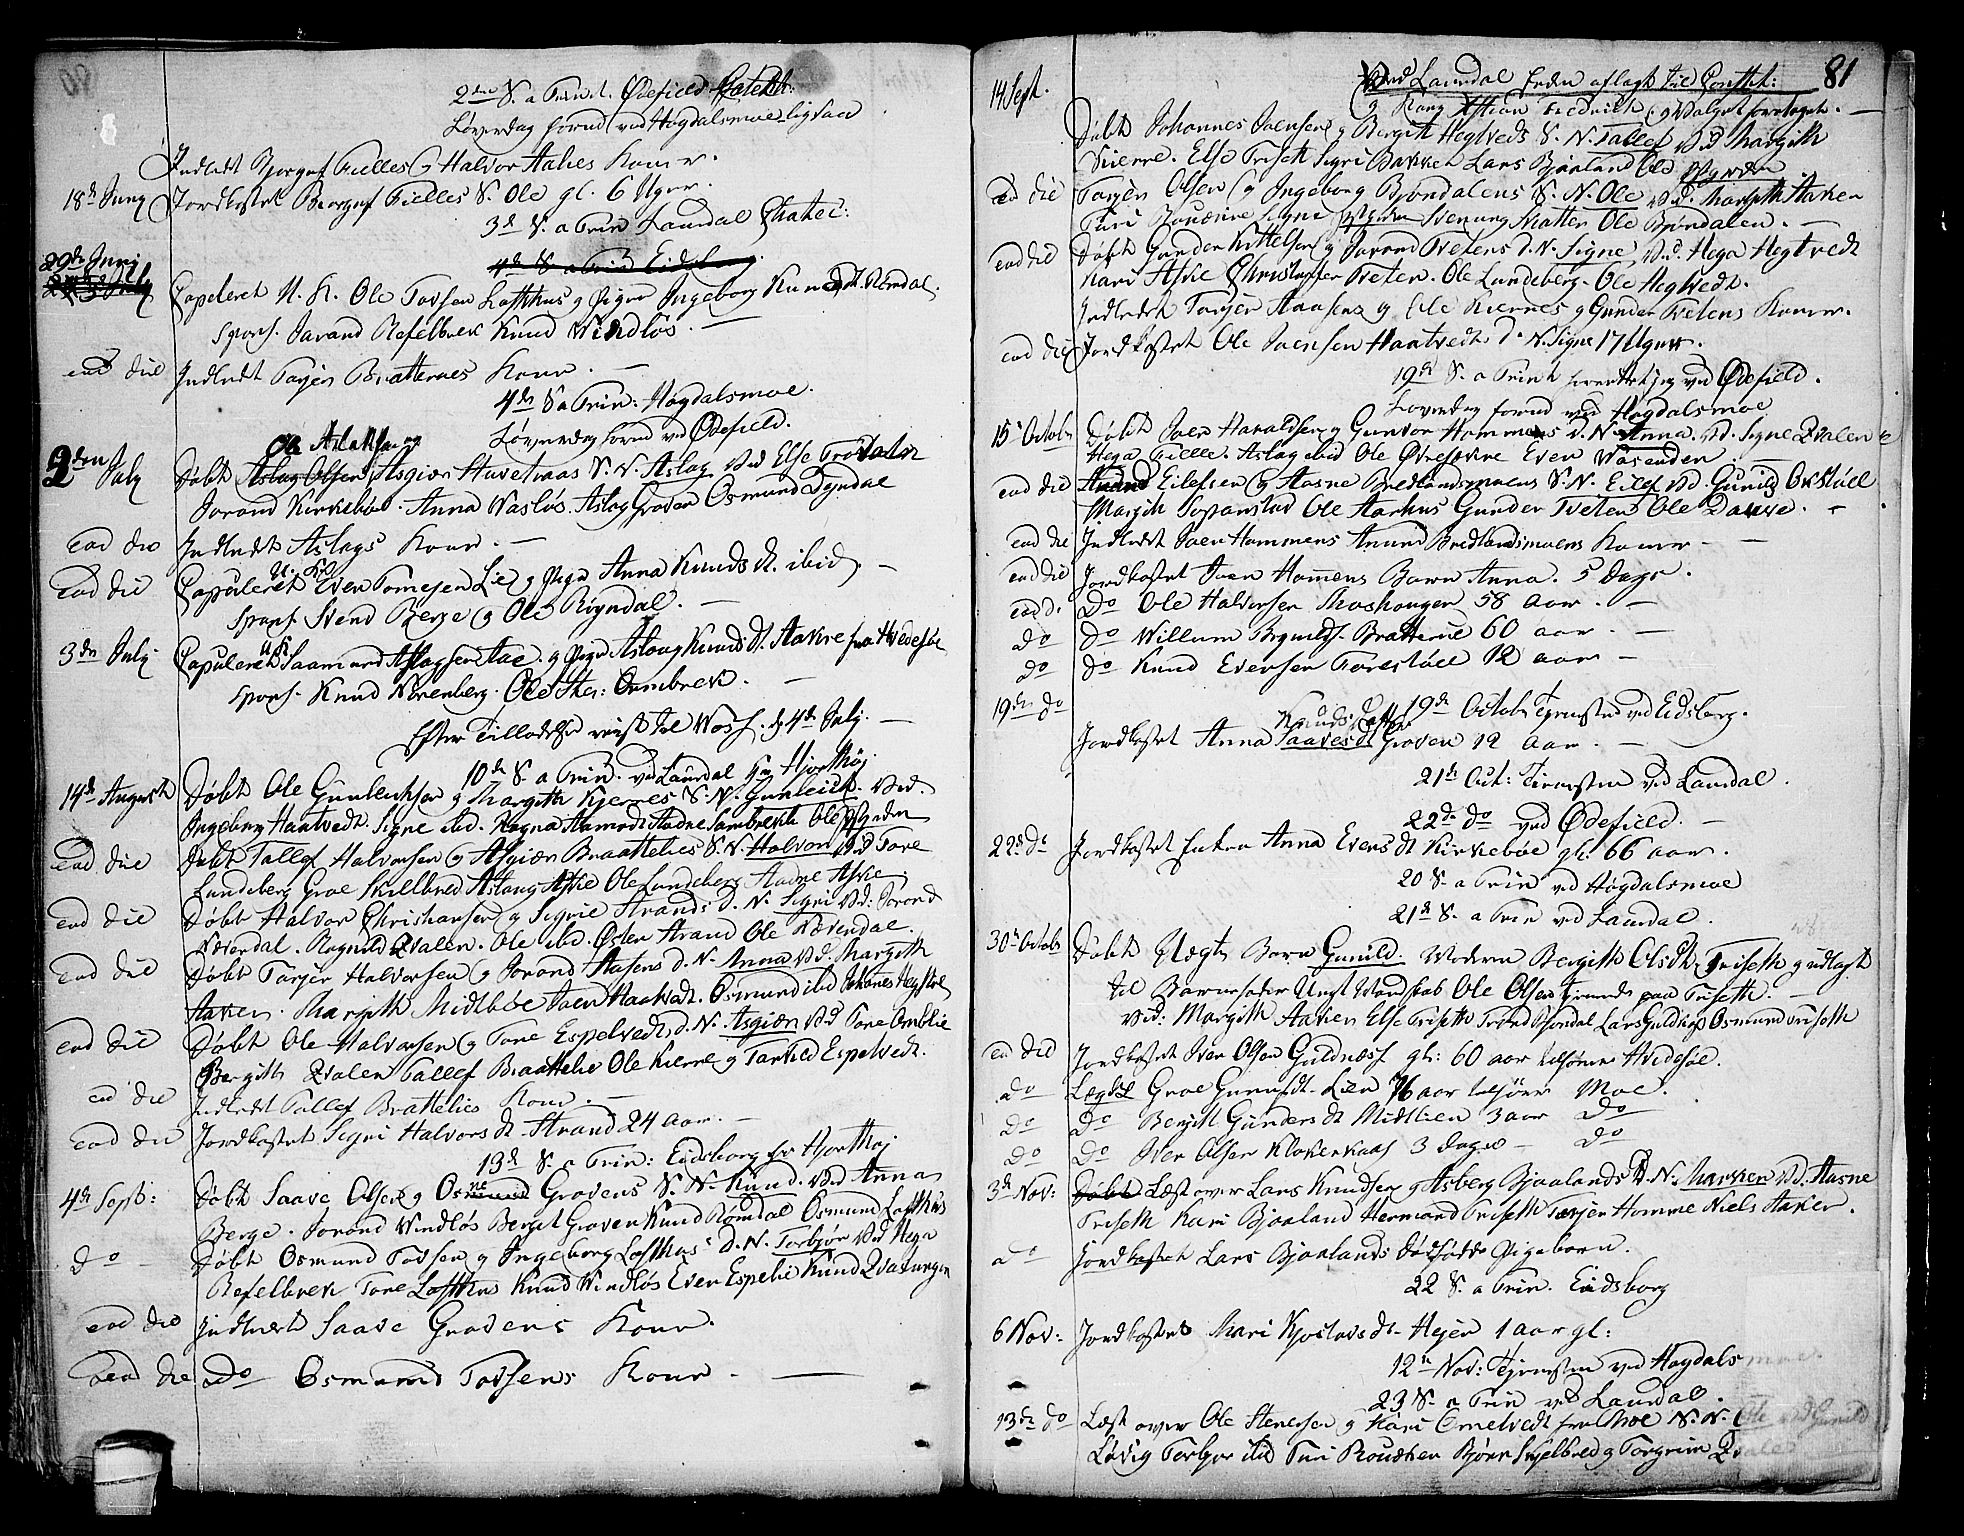 2den S. a Trinit. Ødefield Catekt:
Løverdag forud ved Høgdalsmoe ligsaa
Indledt Bjørguf Fielles og Halvor Aakes Koner.
18de Juny Jordkastet Biørguf Fielles S. Ole gl. 6 Uger.
3de S. a Trin Laurdal Chatec:
4de S a Trin Eidsborg
29de Juni
Copuleret U. K. Ole Tovsen Lofthus og Pigen Ingeborg Knudsdt. Rømdal.
spons. Jarand Refelbrek Knud Windløs. —
ead die Indledt Tarjer Bratternes Kone. —
4de S a Trin: Høgdalsmoe.
Løverdag forud ved Ødefield.
Ole Aslaksen og
2den July Døbt Aslag Olsen Asgiær Huvetvaas S. N. Aslag Vid Else
Jorand Kirkebøe. Anna Vasløs. Aslag Groven Osmund Dyndal
ead die Indledt Aslags Kone. —
U. K.
ead die Copuleret Even Tomesen Lie og Pigen Anna Knudsdt. ibid. —
spons. Svend Berge og Ole Røyndal. —
3de July Copuleret U K Saamund Aslagsen Aae og Pigen Aslaug Knudsdt. Aakre fra Hvedesøe
spons. Knud Norenberg. Ole Ormbrek. —
Efter Tilladelse reist til Voss. d. 4de July. —
10de S. a Trin. ved Laurdal Hr Hjorthøj
14de Augusti Døbt Ole Gunleiksen og Margith Kjernes S. N. Gunleick. Vid.
Ingeborg Haatvedt. Signe ibid. Ragna Aamodt Aadne Sambrekke Ole
ead die Døbt Tallef Halvorsen og Asgiær Braattelies S. N. Halvor Vid Tore
Lundeberg Groe Skilbred Aslaug Askie Ole Lundeberg Aadne Askie.
ead die Døbt Halvor Christiansen og Sigrie Strands d. N. Sigri Vid: Jorond
Næverdal. Ragnild Qvalen. Ole ibid. Østen Strand Ole Næverdal.
ead die Døbt Tarjer Halvorsen og Jorond Aasens d. N. Anna Vid. Margith
Aaken. Margith Midtbøe Joen Haatvedt. Osmund ibid Johanes Hegtvet
ead die Døbt Ole Halvorsen og Tore Espelvedts d. N. Asgiær Vid Tore Omblie
Bergith Qvalen Tallef Braattelie Ole Kierre og Tarkild Espelvedt.
ead die Indledt Tallef Brattelies Kone. —
ead die Jordkastet Sigri Halvorsdt. Strand 24 aar. —
13de S. a Trin: Eidsborg hr Hjorthøj
4de Septb: Døbt Saave Olsen og Osmund Grovens S. N. Knud. Vid Anna
Berge. Jorond Windløs Berget Groven Knud Rømdal Osmund Lofthus
do — Døbt Osmund Tovsen og Ingeborg Lofthus' d. N. Torbjør Vid Hega
Refelbrek Tore Lofthus Knud Windløs Even Espelie Knud
ead die Indledt Saave Grovens Kone.
ead die do Osmund Tovsens Kone. —
81
14 Sept. Ved Laurdal Eeden aflagt til Constit:
og Kong Christian Frederich og Valget foretaget. —
Døbt Johannes Joensen og Bergith Hegtveds S. N. Tallef Vid Margith
Kierre. Else Triseth Sigri Bakken Lars Bjaaland Ole
ead die Tarjer Olsen og Ingeborg Bjøndalens S. N. Ole Vid. Margith Aaken
Turi Signe Svenung Skatter Ole Bjøndalen. —
ead die Døbt Gunder Kittelsen og Jorand Tvetens d. N. Signe Vid. Hega Hegtvedt
Kari Askie Christoffer Tveten. Ole Lundeberg. Ole Hegtvedt.
Indledt Tarjer Aasens og Ole Kiernes og Gunder Tvetens Koner.
ead die Jordkastet Ole Joensen Haatvedts d. N. Signe 17 Uger.
19de S. a Trinit forrettet jeg ved Ødefield.
Løverdag forud ved Høgdalsmoe
15de Octobr Døbt Joen Haraldsen og Gunvor Hommens d. N. Anna. Vid. Signe Qvalen
Hega Fielle. Aslag ibid Ole Even Vasenden. —
ead die Anund Eilefsen og Aasne Bredlandsmoens S. N. Eilef Vid. Gunild Oxstøll
Margith Sopanstad Ole Aarhus Gunder Tveten Ole —
ead die Indledt Joen Hommens Anund Bredlandsmoens Koner —
ead die Jordkastet Joen Homens Barn Anna. 5 Dage.
ead d. Do Ole Halvorsen Moshougen 58 aar. —
do do Willum Brynildsen Bratterne 60 aar. —
do do Knud Evensen Torestøll 12 aar —
19de do 19de Octobr Tjenesten ved Eidsborg.
Knuds Datter
Jordkastet Anna Saavesdt Groven 12 aar. —
21de Oct: Tienesten ved Laurdal.
22de do ved Ødefield. —
22de do Jordkastet Enken Anna Evensdt Kirkebøe gl. 66 aar.
20 S. a Trin ved Høgdalsmoe
21de S. a Trin ved Laurdal.
30te Octobr Døbt Uægte Barn Gunild. Moderen Bergith Olsdt. Triseth og udlagt
til Barnefader Ungt Mandskab Ole Olsen paa Triseth. —
Vid: Margith Aaken Else Triseth Trond Bjondal Lars Osmund Triseth
ea die Jordkastet Iver Olsen Guldness gl: 60 aar tilhører Hvidesøe.
do Lægde Groe Gunufsdt. Lien 76 aar tilhører Moe.
do Do Bergit Gundersdt Midtlien 3 aar Do
do Do Iver Olsen Klokerkaas 3 dage — Do
3de Nov: Døbt Læst over Lars Knudsen og Asberg Bjaalands d. N. Marken Vid. Aasne
Triseth Kari Bjaaland Hermand Triseth Tarjer Homme Niels Aaken.
do Jordkastet Lars Bjaalands dødfødte Pigebarn.
22 S. a Trin. Eidsborg
6 Nov: Jordkastet Mari Kjostovsdt. Hejen 1 aar gl:
12te Nov: Tjenesten ved Høgdalsmoe.
23 S. a Trin ved Laurdal.
13de do Læst over Ole Stenersen og Kari Omelvedt fra Moe S. N. Ole Vid Gunild
Løvig Torbjør ibid Turi Bjørn og Torgrim